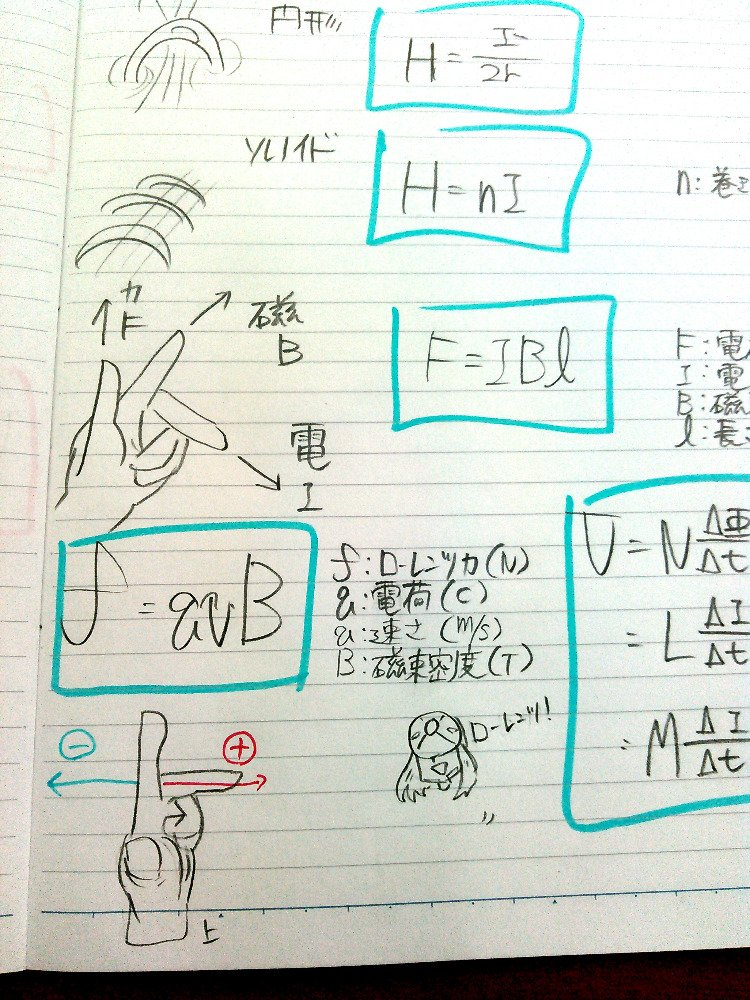 円形
H = I/2r
ソレノイド
H = nI
n: 巻
力
作
磁
B
電
I
F = IBl
F: 電
I: 電
B: 磁
l: 長
f = qvB
f: ローレンツ力 (N)
q: 電荷 (C)
q: 速さ (m/s)
B: 磁束密度 (T)
V = N ΔΦ/Δt
= L ΔI/Δt
= M ΔI/Δt
⊖
⊕
ローレンツ!
上